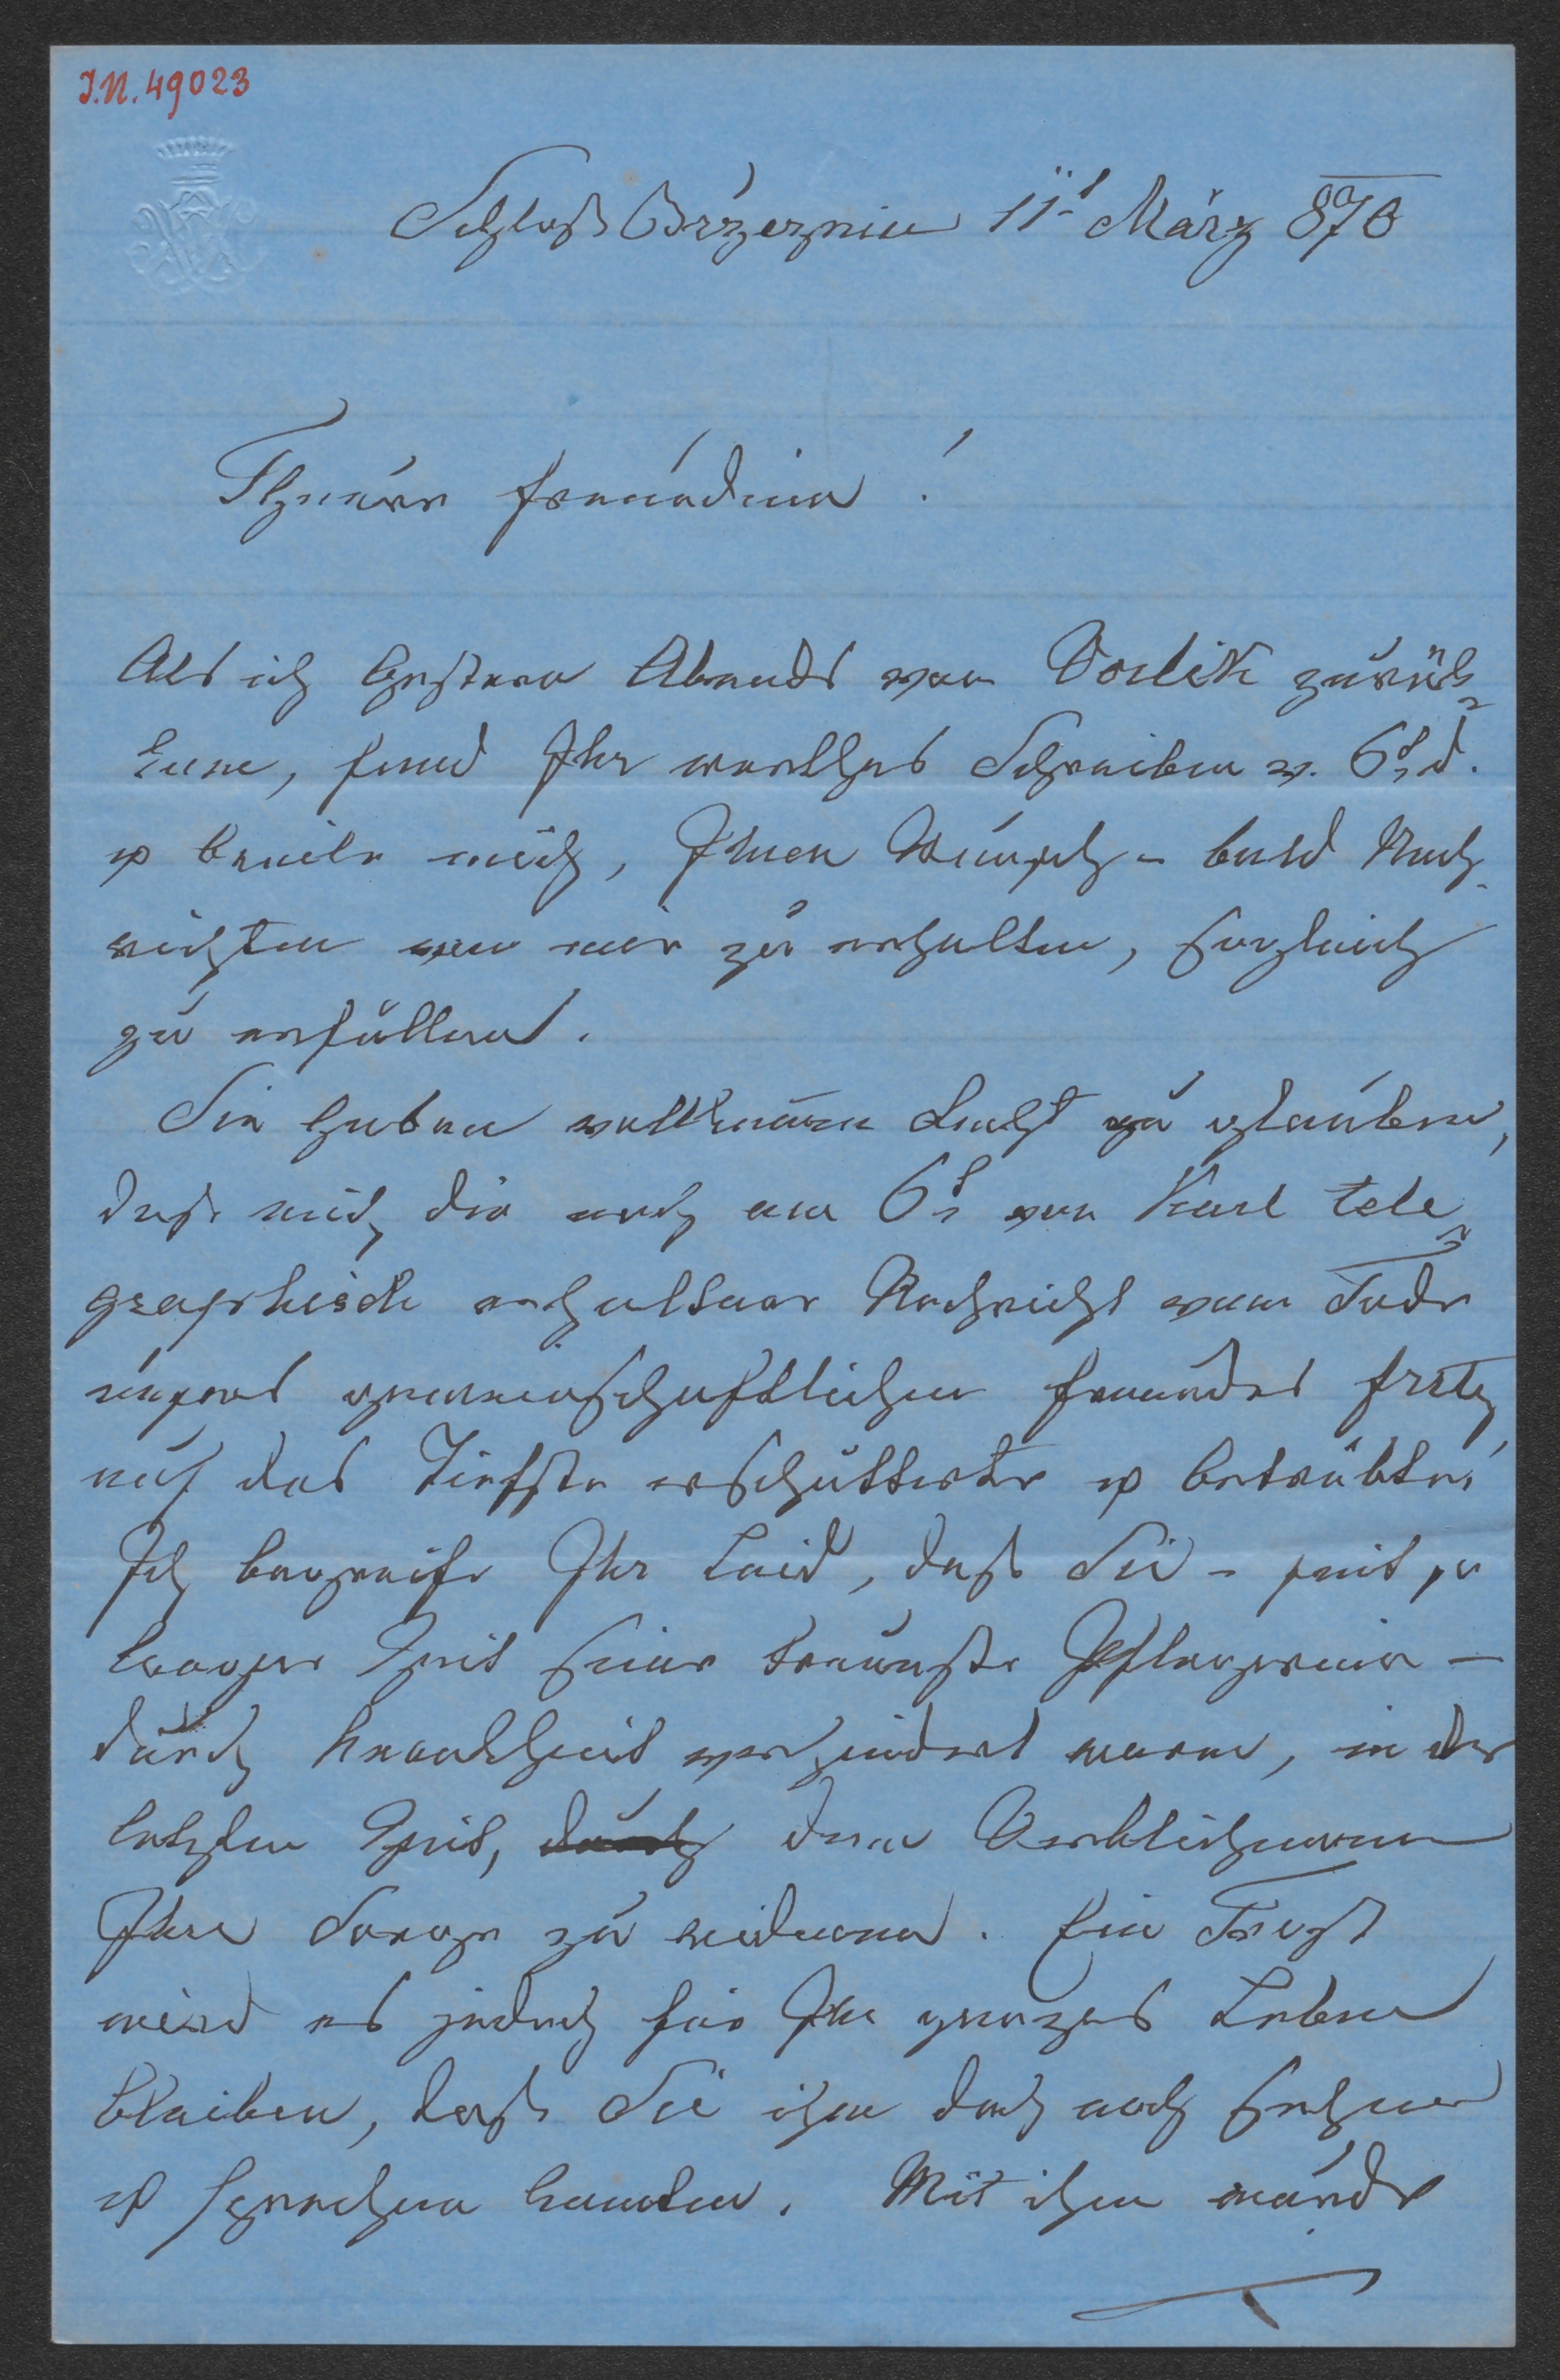 I.N. 49023
Schloß Brzeznic 11t März 870
Theuere Freundin!
Als ich gestern Abends von Vorlik zurück-
kam, fand Ihr werthes Schreiben v. 6t d.
u beeile mich, Ihren Wunsch – bald Nach-
richten von mir zu erhalten, sogleich
zu erfüllen.
Sie haben vollkommen Recht zu glauben,
daß mich die noch am 6t von Karl tele-
graphisch erhaltene Nachricht vom Tode
unseres gemeinschaftlichen Freundes Fritz
auf das Tiefste erschütterte u betrübte.
Ich begreife Ihr Leid, daß Sie – seit so
langer Zeit seine treueste Pflegerin –
durch Krankheit verhindert waren, in der
letzten Zeit, durch dem Verblichenen
Ihre Sorge zu widmen. Ein Trost
wird es jedoch für Ihr ganzes Leben
bleiben, daß Sie ihn doch noch sehen
u sprechen konnten. Mit ihm wurde